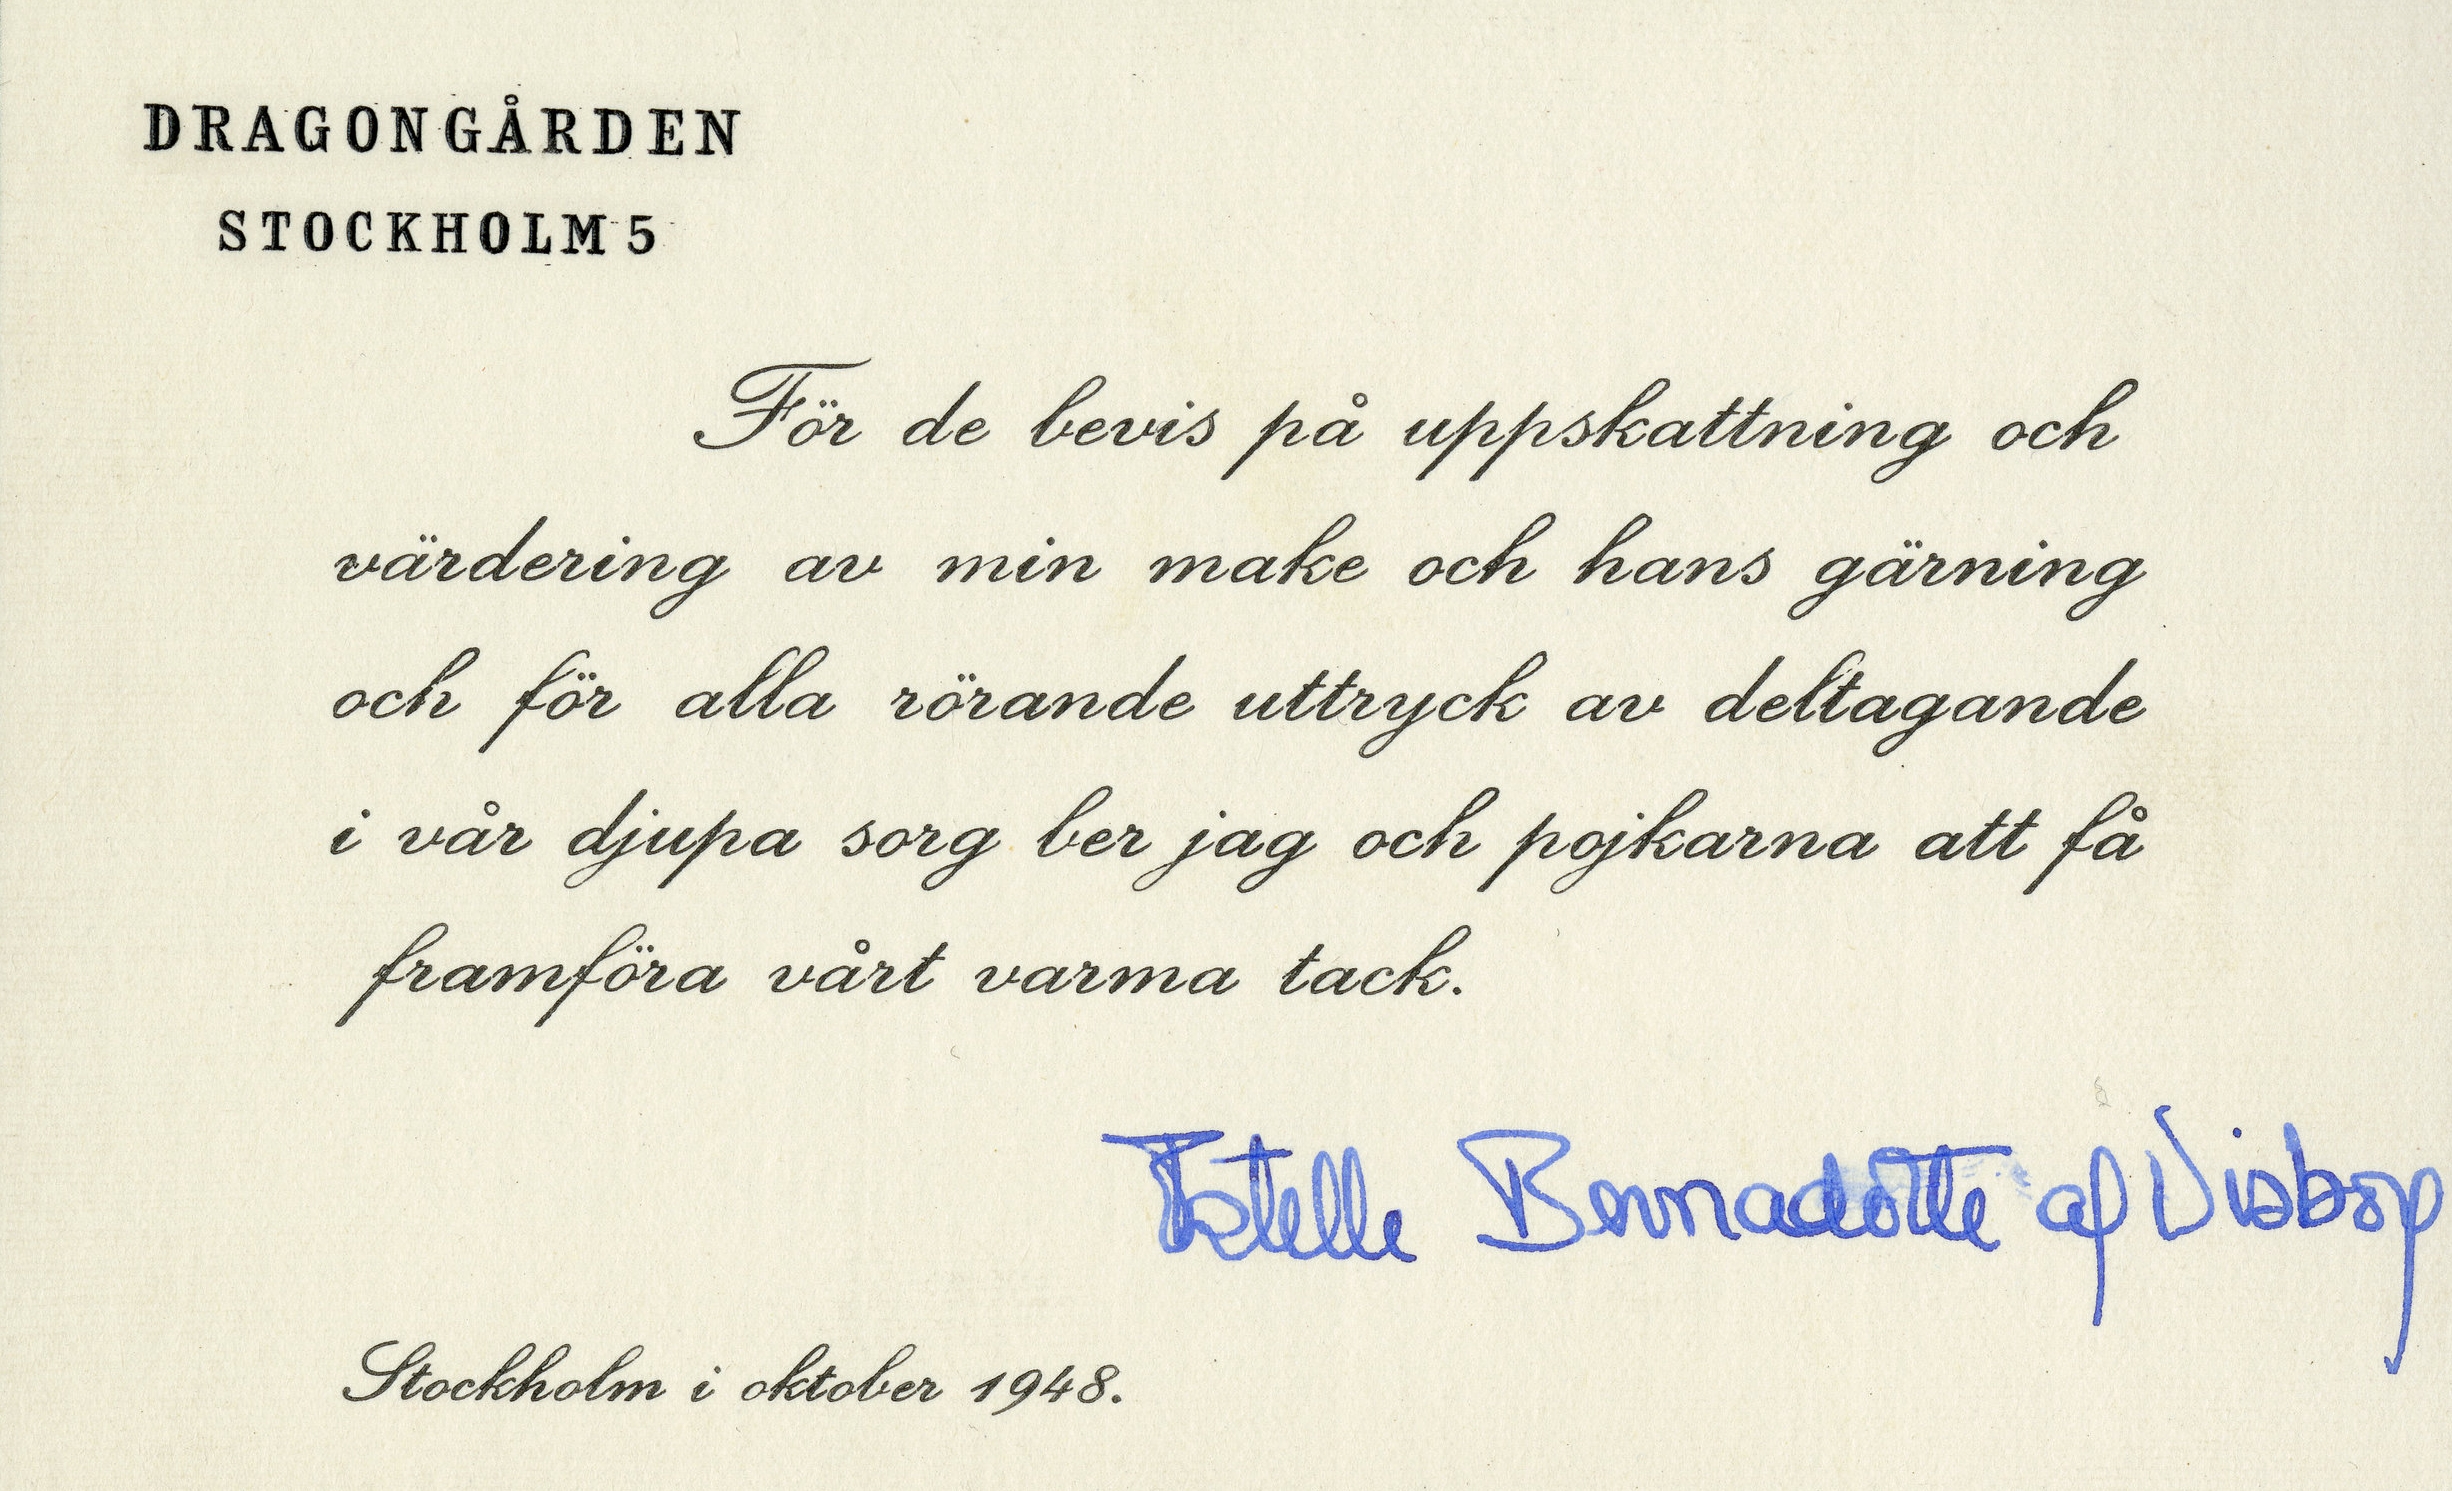 DRAGONGÅRDEN
STOCKHOLM 5
För de bevis på uppskattning och
värdering av min make och hans gärning
och för alla rörande uttryck av deltagande
i vår djupa sorg ber jag och pojkarna att få
framföra vårt varma tack.
Estelle Bernadotte af Wisborg
Stockholm i oktober 1948.